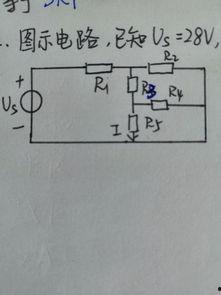 .. 图示电路,已知 Us=28V,
R2
+
R1
R3
R4
Us
R5
I
−